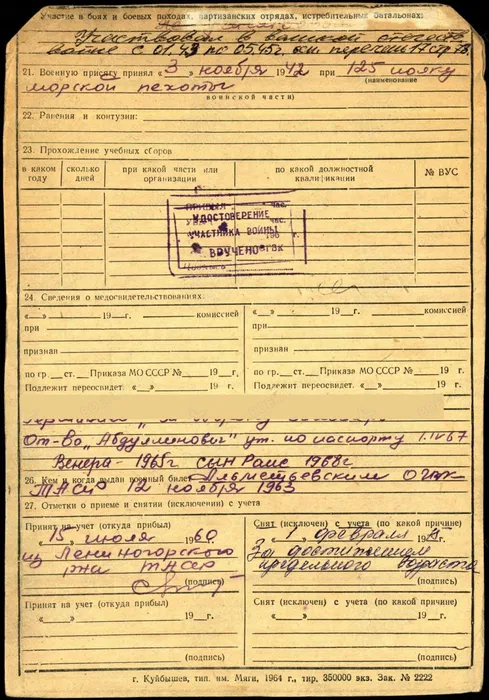 Участие в боях и боевых походах, партизанских отрядах, истребительных батальонах:
Участвовал в великой отечеств
войне с 01.43 по 05.45г.
21. Военную присягу принял «3» ноября 1942 при 125 полку
(наименование
морской пехоты
воинской части)
22. Ранения и контузии:
23. Прохождение учебных сборов
в каком году
сколько дней
при какой части или организации
по какой должностной квалификации
№ ВУС
УДОСТОВЕРЕНИЕ
УЧАСТНИКА ВОЙНЫ
ВРУЧЕНО
24. Сведения о медосвидетельствованиях:
«__» 19 г. комиссией
«__» 19 г. комиссией
при
при
признан
признан
по гр. ст. Приказа МО СССР № 19 г.
по гр. ст. Приказа МО СССР № 19 г.
Подлежит переосвидет. «__» 19 г.
Подлежит переосвидет. «__» 19 г.
От-во „Абдулменович" ут. по паспорту
Венера - 1965г сын Раис 1968г
26. Кем и когда выдан военный билет Альметьевским ОГВК
ТАСР 12 ноября 1963
27. Отметки о приеме и снятии (исключении) с учета
Принят на учет (откуда прибыл)
«15» июля 196 г.
из Лениногорского
рвк ТАСР
(подпись)
Снят (исключен) с учета (по какой причине)
«1» февраля 19 г.
За достижением
предельного возраста
(подпись)
Принят на учет (откуда прибыл)
«__» 19 г.
(подпись)
Снят (исключен) с учета (по какой причине)
«__» 19 г.
(подпись)
г. Куйбышев, тип. им. Мяги, 1964 г., тир. 350000 экз. Зак. № 2222